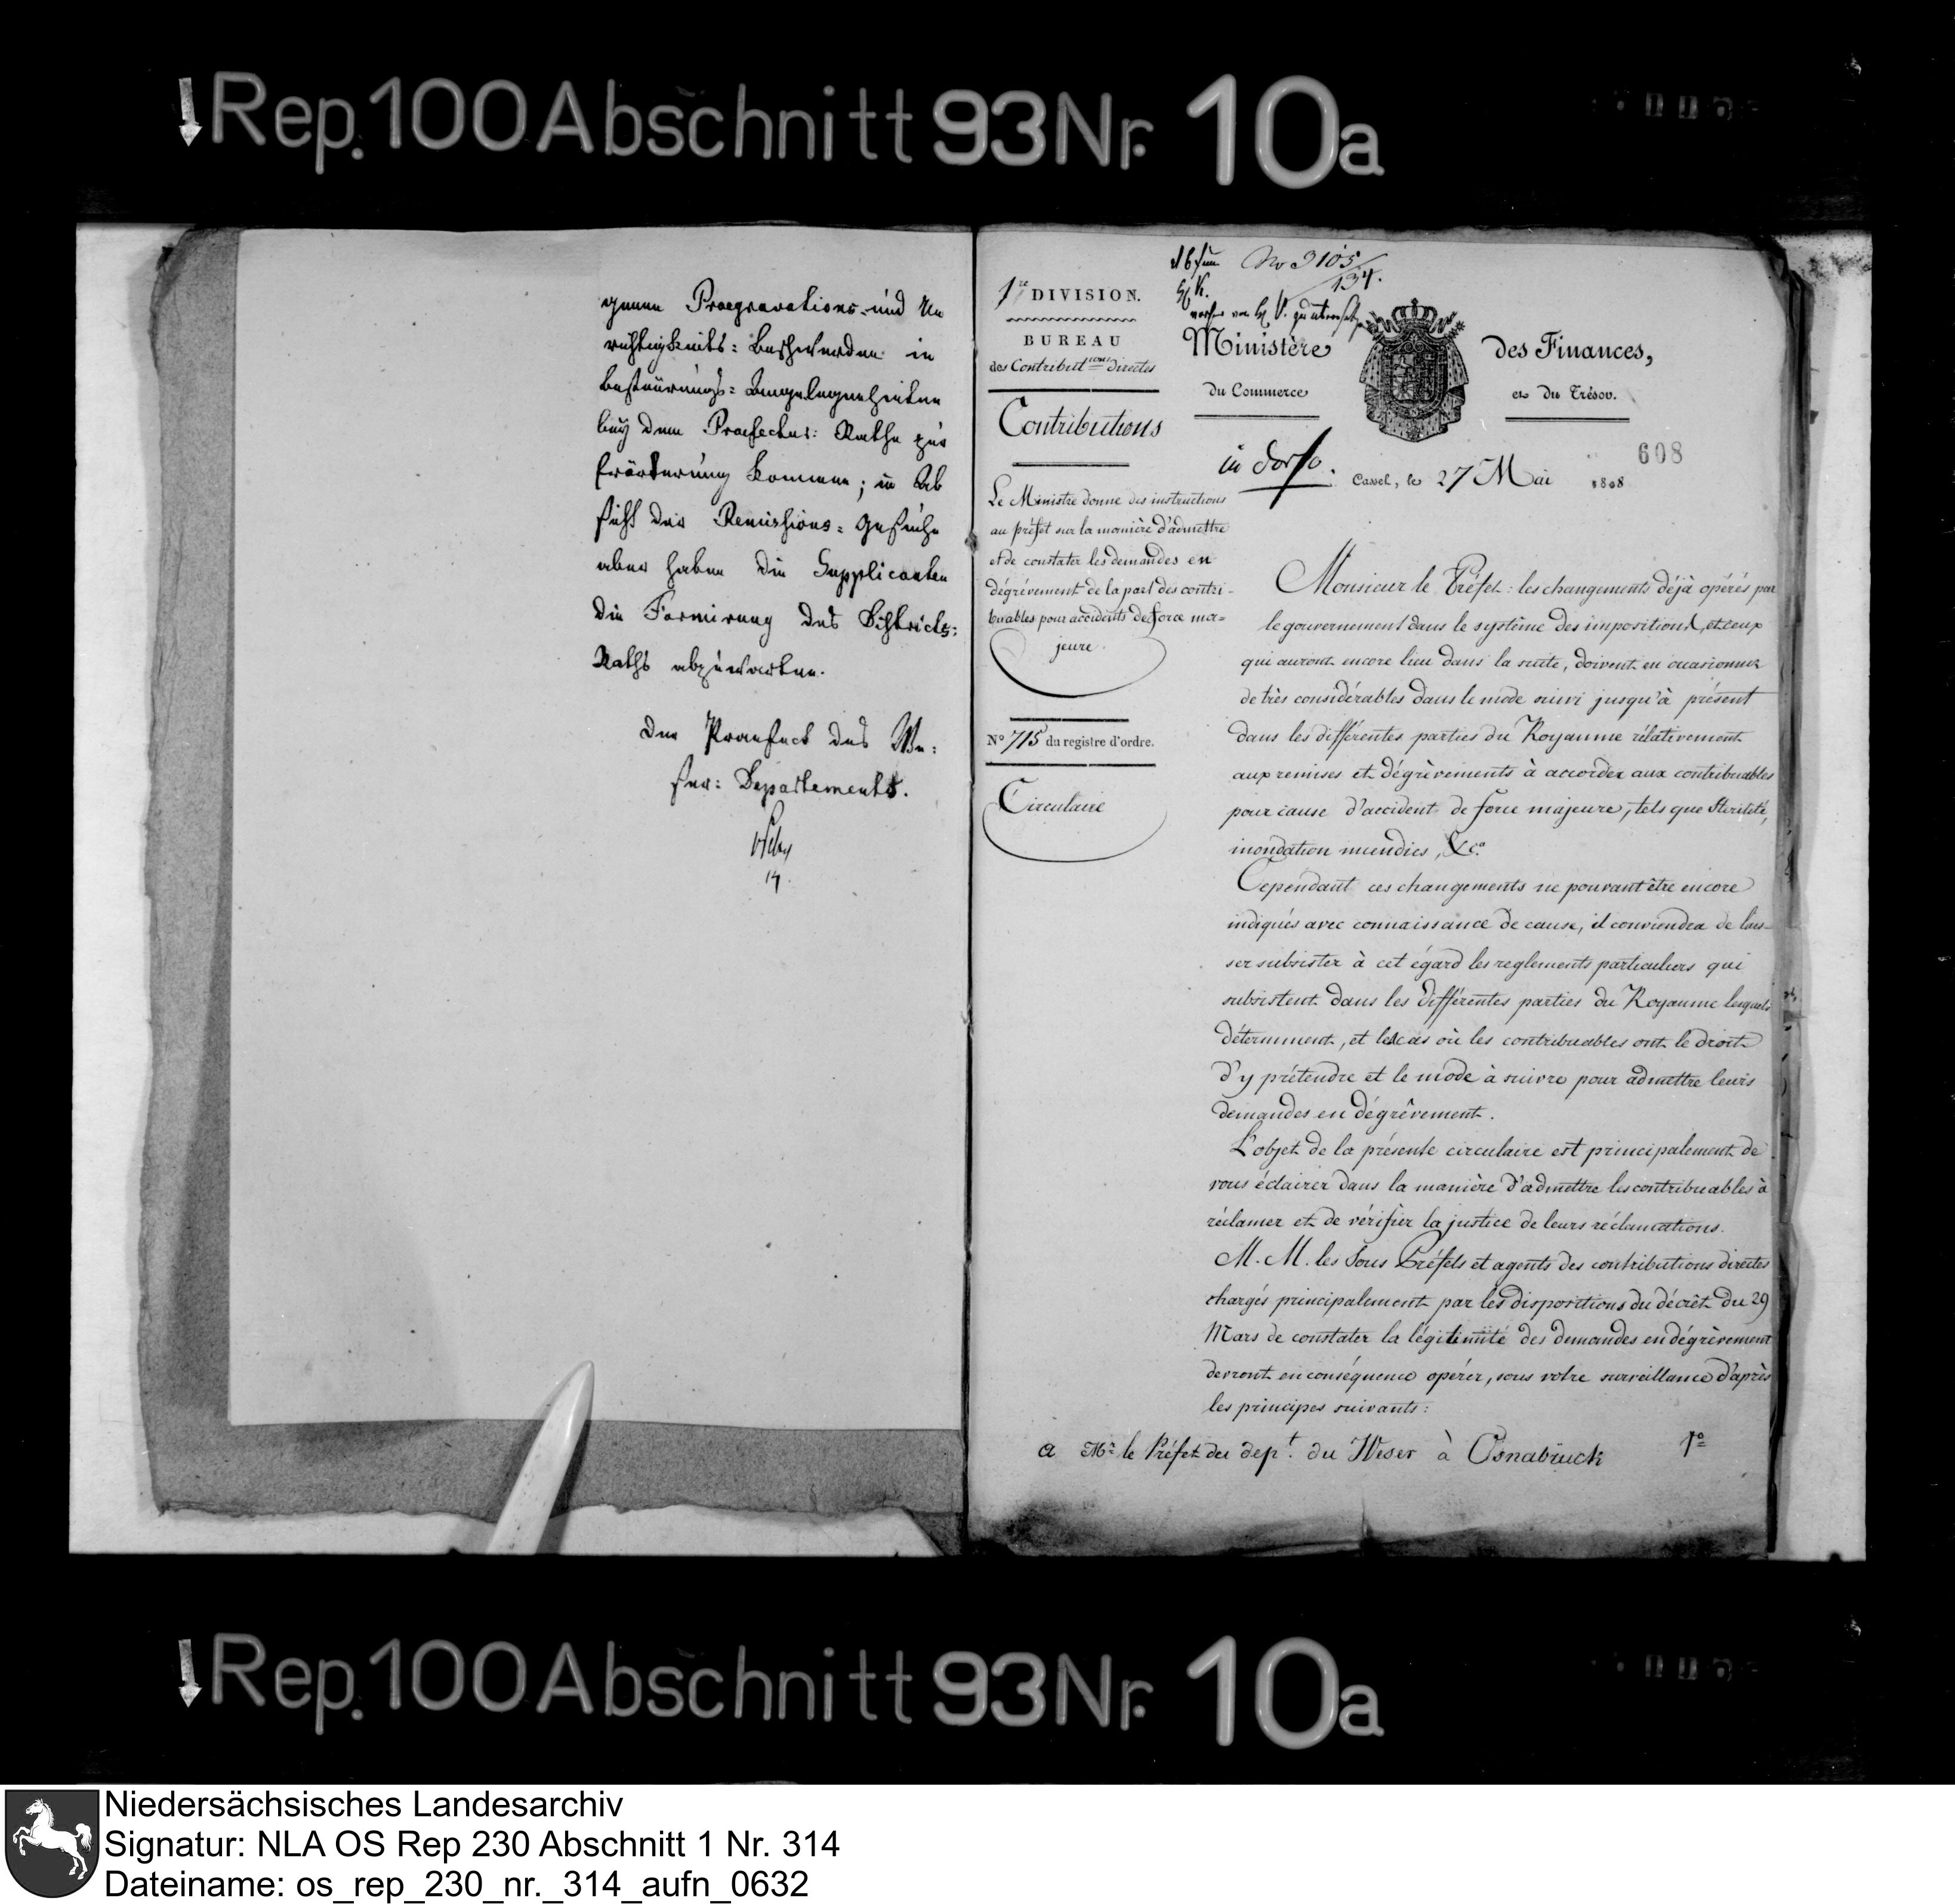 Rep. 100 Abschnitt 93 Nr. 10a
genen Praegravations- und Un
richtigkeits: Beschwerden in
Besteürungs: Angelegenheiten
bey dem Praefectur: Rathe zür
Erörterüng kommen; in Ab
sicht der Remissions: Gesüche
aber haben die Supplicanten
die Formirung des Districts:
Raths abzüwarten.
Der Praefect des We:
ser: Departements.
No 3105
134.
1re DIVISION.
BUREAU
des Contributions directes
Ministère des Finances,
du Commerce et du Trésor.
Contributions
in dorso.
608
Cassel, le 27 Mai 1808
Le Ministre donne des instructions
au préfet sur la manière d'admettre
et de constater les demandes en
dégrèvement de la part des contri-
buables pour accidents de force ma=
jeure.
No 715 du registre d'ordre.
Circulaire
Monsieur le Préfet: les changements déjà opérés par
le gouvernement dans le système des impositions, et ceux
qui auront encore lieu dans la suite, doivent en ocasionner
de très considérables dans le mode suivi jusqu'à présent
dans les différentes parties du Royaume rélativement
aux remises et dégrèvements à accorder aux contribuables
pour cause d'accident de force majeure, tels que stérilité,
inondation incendies, &ca.
Cependant ces changements ne pouvant être encore
indiqués avec connaissance de cause, il conviendra de lais-
ser subsister à cet égard les reglements particuliers qui
subsistent dans les différentes parties du Royaume lesquels
déterminent, et les cas où les contribuables ont le droit
d'y prétendre et le mode à suivre pour admettre leurs
demandes en dégrêvement.
L'objet de la présente circulaire est principalement de
vous éclairer dans la manière d'admettre les contribuables à
réclamer et de vérifier la justice de leurs réclamations.
M. M. les Sous Préfets et agents des contributions directes
chargés principalement par les dispositions du décrêt du 29
Mars de constater la légitimité des demandes en dégrèvement
devront en conséquence opérer, sous votre surveillance d'après
les principes suivants:
a Mr. le Préfet du dept. du Weser à Osnabruck 1o
Rep. 100 Abschnitt 93 Nr. 10a
Niedersächsisches Landesarchiv
Signatur: NLA OS Rep 230 Abschnitt 1 Nr. 314
Dateiname: os_rep_230_nr._314_aufn_0632